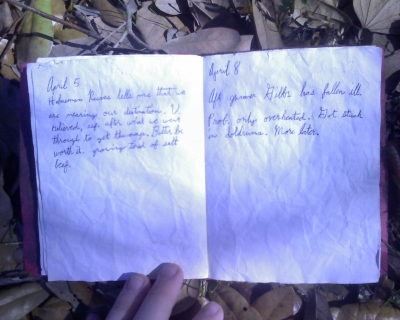 April 5
Helmsman Rowas tells me that we
are nearing our destination. I'm
relieved, esp. after what we went
through to get the map. Better be
worth it. growing tired of salt
beef.
April 8
Aft gunner Gibbs has fallen ill.
Prob. only overheated. Got stuck
in doldrums. More later.